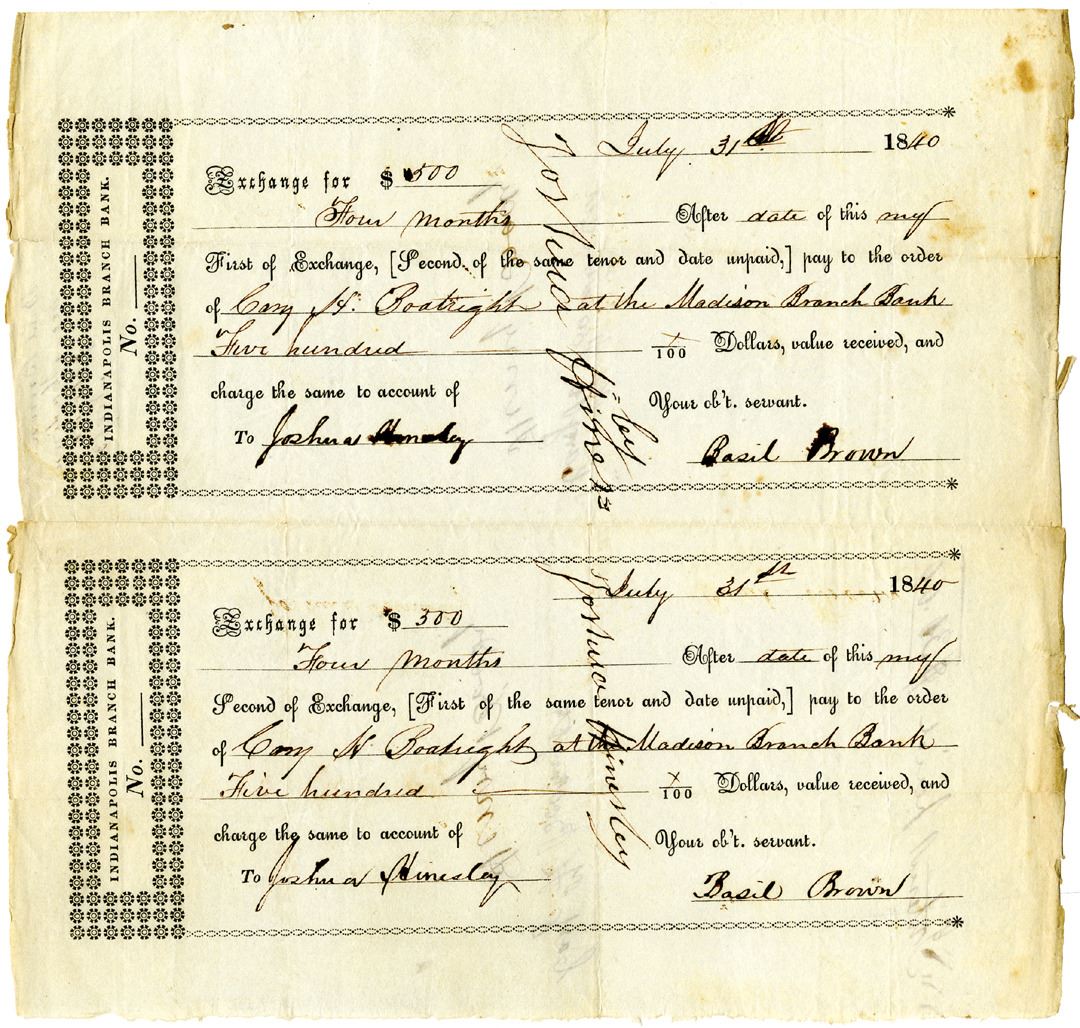 INDIANAPOLIS BRANCH BANK.
No.
July 31st 1840
Exchange for $ 500
Four months After date of this my
First of Exchange, [Second of the same tenor and date unpaid,] pay to the order
of Cary H. Boatright at the Madison Branch Bank
Five hundred /100 Dollars, value received, and
charge the same to account of
Your ob't. servant.
To Joshua Hinesley
Basil Brown
Joshua
INDIANAPOLIS BRANCH BANK.
No.
July 31st 1840
Exchange for $ 500
Four months After date of this my
Second of Exchange, [First of the same tenor and date unpaid,] pay to the order
of Cary H Boatright at the Madison Branch Bank
Five hundred x/100 Dollars, value received, and
charge the same to account of
Your ob't. servant.
To Joshua Hinesley
Basil Brown
Joshua Hinesley